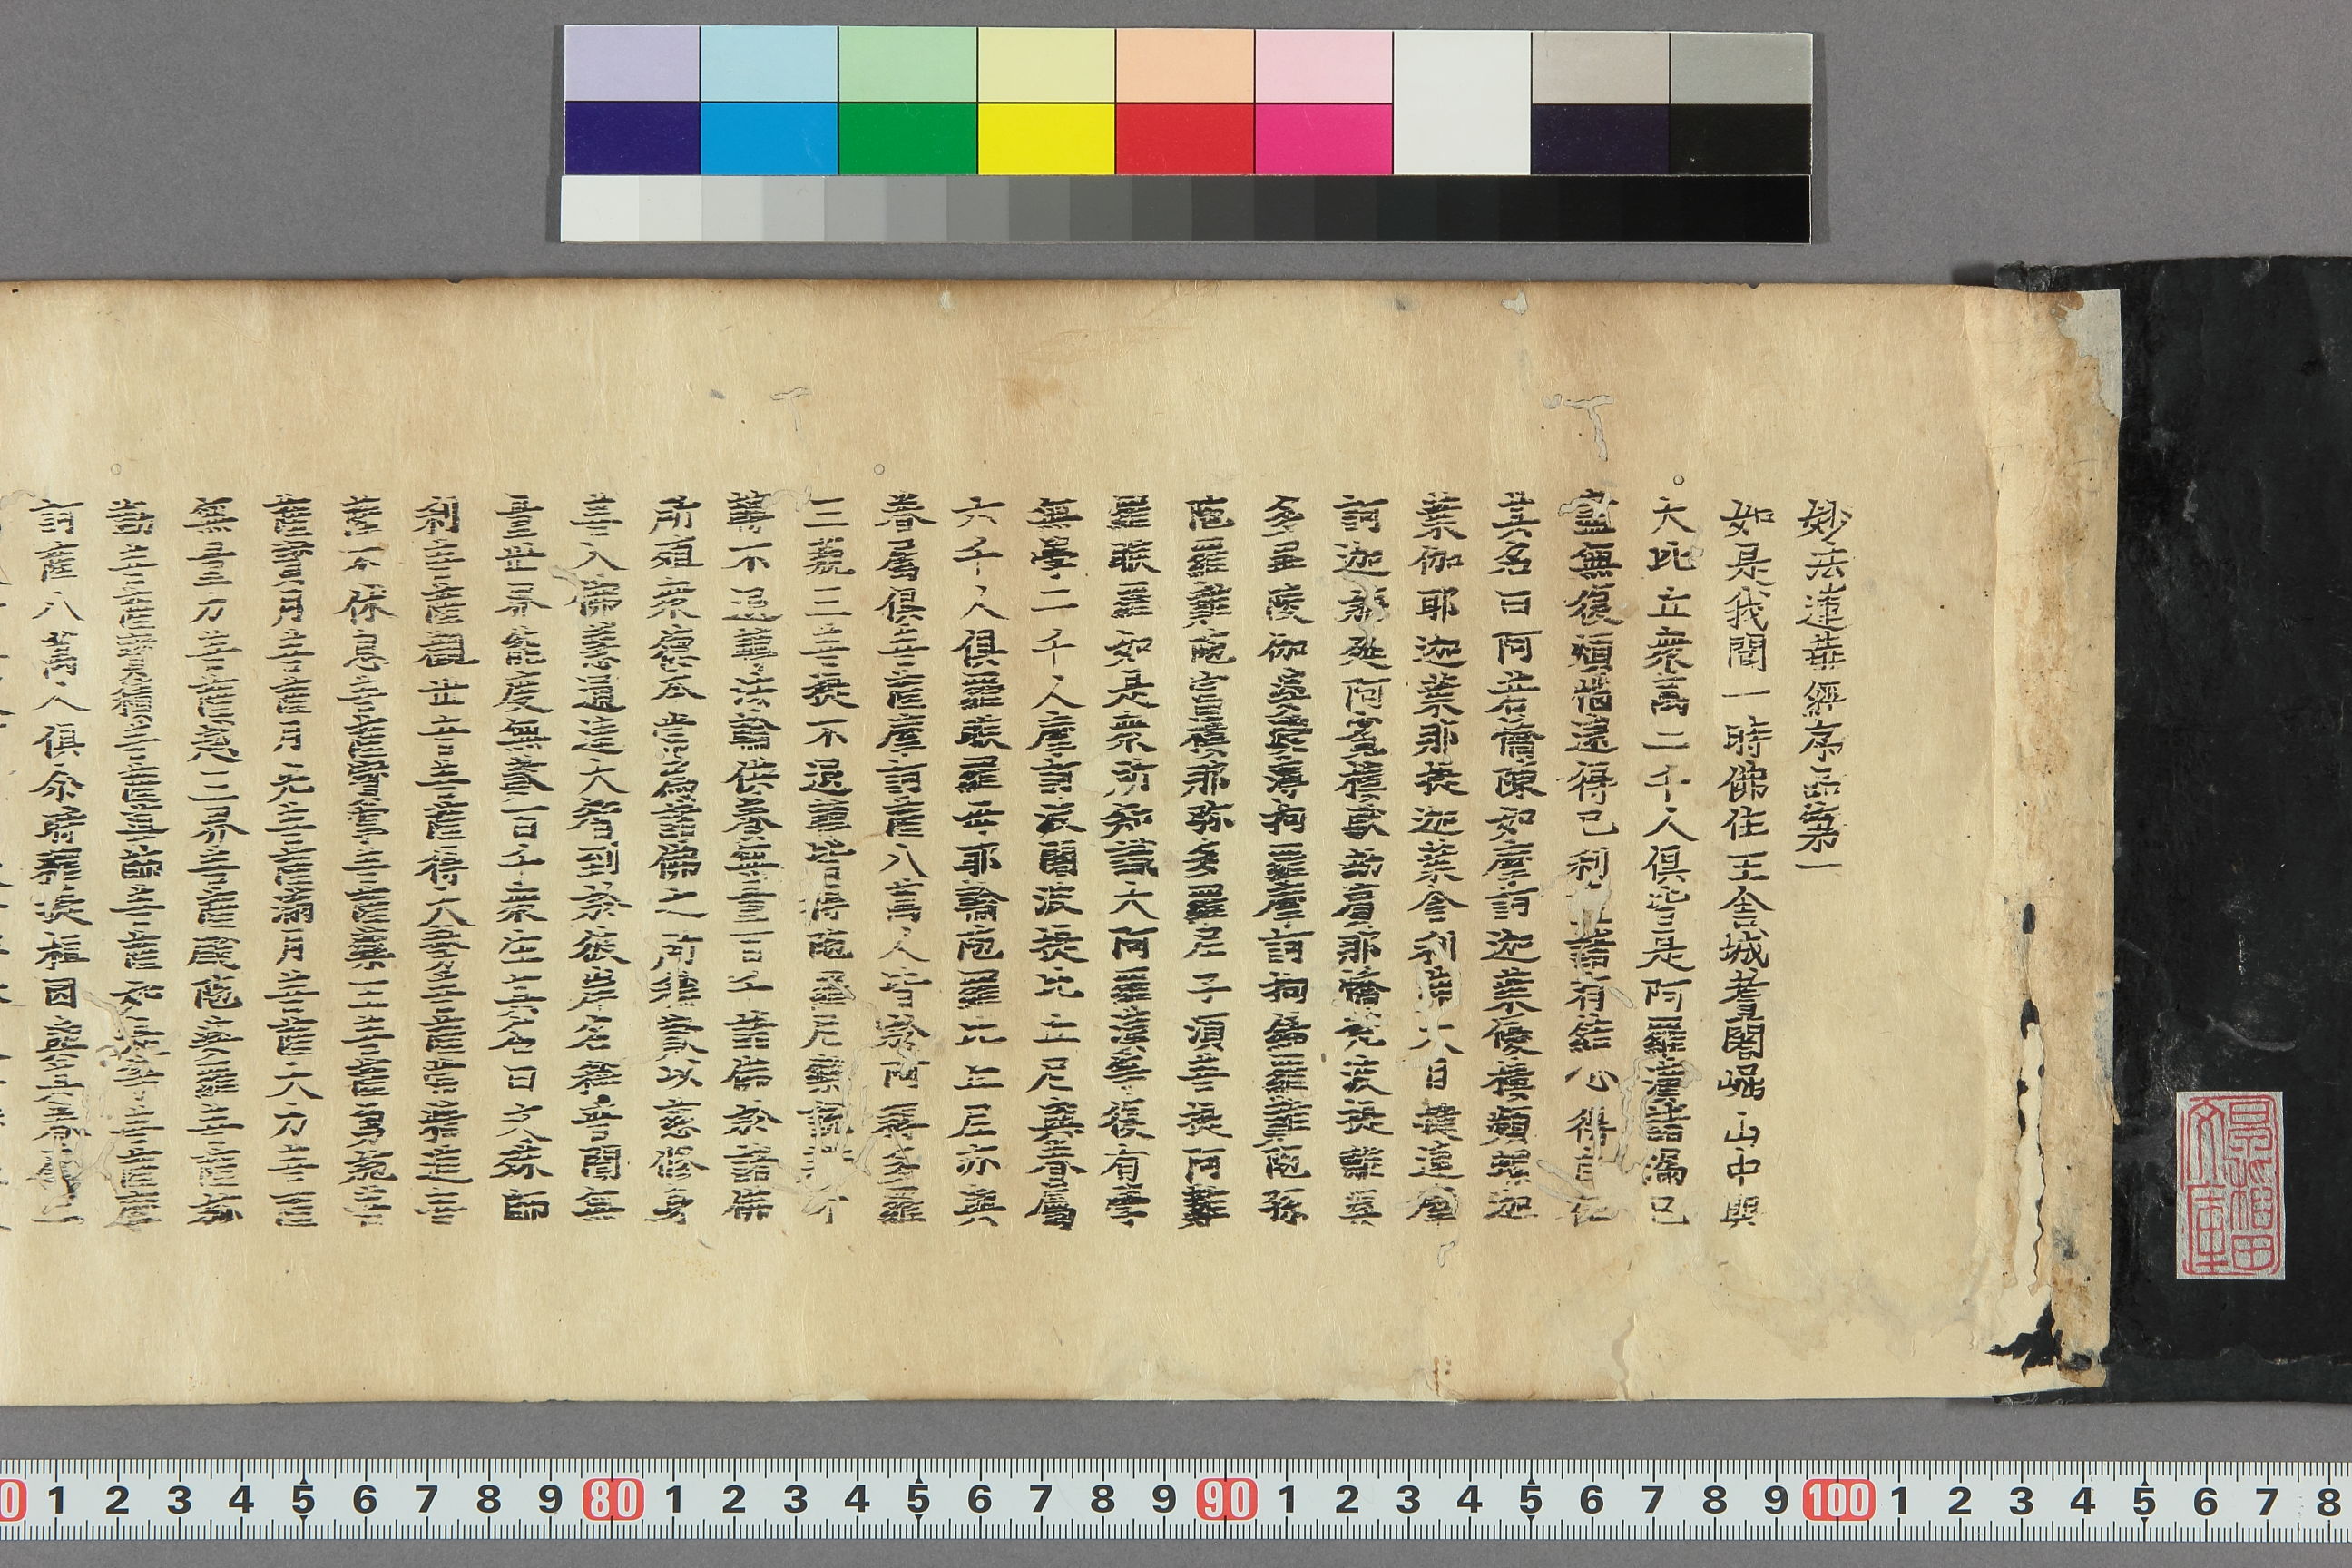 妙法蓮華經序品第一
如是我聞一時佛住王舍城耆闍崛山中與
大比丘衆萬二千人俱皆是阿羅漢諸漏已
盡無復煩惱逮得己利盡諸有結心得自在
其名曰阿若憍陳如摩訶迦葉優樓頻螺迦
葉伽耶迦葉那提迦葉舍利弗大目揵連摩
訶迦旃延阿㝹樓馱劫賓那憍梵波提離婆
多畢陵伽婆蹉薄拘羅摩訶拘絺羅難陀孫
陀羅難陀富樓那弥多羅尼子須菩提阿難
羅睺羅如是衆所知識大阿羅漢等復有學
無學二千人摩訶波闍波提比丘尼與眷屬
六千人俱羅睺羅母耶輸陀羅比丘尼亦與
眷屬俱菩薩摩訶薩八萬人皆於阿耨多羅
三藐三菩提不退轉皆得陀羅尼樂說辯才
轉不退轉法輪供養無量百千諸佛於諸佛
所殖衆德本常為諸佛之所稱歎以慈修身
善入佛慧通達大智到於彼岸名稱普聞無
量世界能度無數百千衆生其名曰文殊師
利菩薩觀世音菩薩得大勢菩薩常精進菩
薩不休息菩薩寶掌菩薩藥王菩薩勇施菩
薩寶月菩薩月光菩薩滿月菩薩大力菩薩
無量力菩薩越三界菩薩颰陀婆羅菩薩弥
勒菩薩寶積菩薩導師菩薩如是等菩薩摩
訶薩八萬人俱尒時釋提桓因與其眷屬二
早稲田文庫
0 1 2 3 4 5 6 7 8 9 80 1 2 3 4 5 6 7 8 9 90 1 2 3 4 5 6 7 8 9 100 1 2 3 4 5 6 7 8